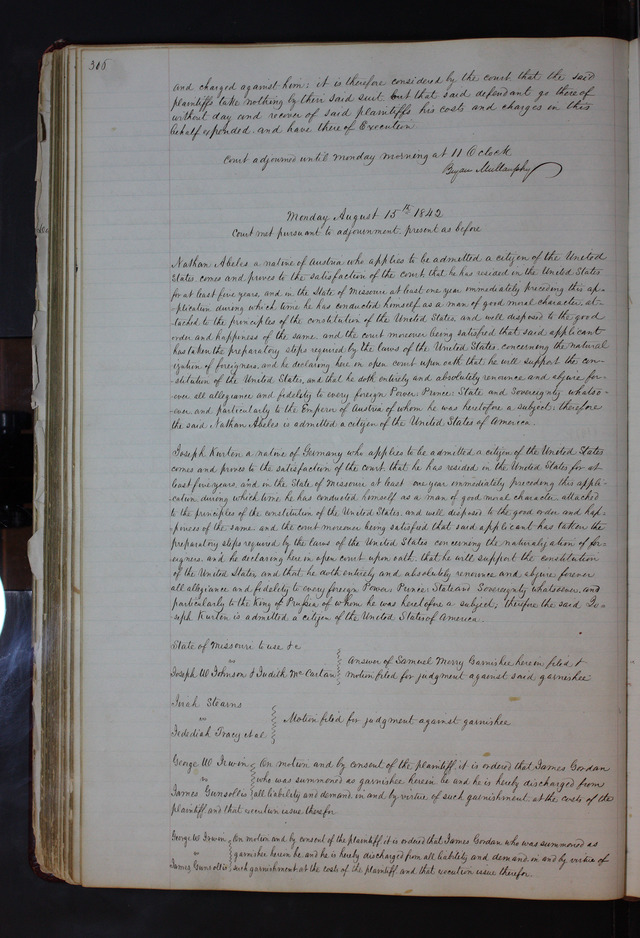 and charged against him; it is therefore considered by the court that the said
plaintiffs take nothing by their said suit but that said defendant go thereof
without day and recover of said plaintiffs his costs and charges in this
behalf expended. and have thereof Execution
Court adjourned until Monday morning at 11 O'clock
Bryan Mullanphy
Monday August 15th 1842
Court met pursuant to adjournment present as before
Nathan Abeles a native of Austria who applies to be admitted a citizen of the United
States. comes and proves to the satisfaction of the court that he has resided in the United States
for at least five years, and in the State of Missouri at least one year immediately preceding this ap-
-plication during which time he has conducted himself as a man of good moral character, at-
-tached to the principles of the constitution of the United States and well disposed to the good
order and happiness of the same. and the court moreover being satisfied that said applicant
has taken the preparatory steps required by the laws of the United States. concerning the natural
ization of foreigners, and he declaring here in open court upon oath that he will support the con-
-stitution of the United States, and that he doth entirely and absolutely renounce and abjure for-
-ever all allegiance and fidelity to every foreign Power. Prince. State and Sovereignty whatso-
-ever. and particularly to the Emperor of Austria of whom he was heretofore a subject; therefore
the said Nathan Abeles is admitted a citizen of the United States of America.
Joseph Kurlon a native of Germany who applies to be admitted a citizen of the United States
comes and proves to the satisfaction of the court. that he has resided in the United States for at
least five years, and in the State of Missouri at least one year immediately preceding this appli-
-cation during which time he has conducted himself as a man of good moral character attached
to the principles of the constitution of the United States. and well disposed to the good order and hap-
-piness of the same. and the court moreover being satisfied that said applicant has taken the
preparatory steps required by the laws of the United States. concerning the naturalization of for-
-eigners. and he declaring here in open court upon oath that he will support the constitution
of the United States, and that he doth entirely and absolutely renounce and abjure forever
all allegiance and fidelity to every foreign Power. Prince. State and Sovereignty whatsoever. and
particularly to the King of Prussia of whom he was heretofore a subject; therefore the said Jo-
seph Kurlon is admitted a citizen of the United States of America.
State of Missouri to use &c
vs
Joseph W Johnson & Judith McCartan
Answer of Samuel Merry Garnishee herein filed &
motion filed for judgment against said garnishee
Jirah Stearns
vs
Jedediah Tracy et al
Motion filed for judgment against garnishee
George W Irwin
vs
James Gunsollis
On motion and by consent of the plaintiff, it is ordered that James Gordan
who was summoned as garnishee herein be and he is hereby discharged from
all liability and demand in and by virtue of such garnishment, at the costs of the
plaintiff and that execution issue therefor
George W Irwin
vs
James Gunsollis
On motion and by consent of the plaintiff, it is ordered that James Gordan who was summoned as
garnishee herein be, and he is hereby discharged from all liability and demand in and by virtue of
such garnishment at the costs of the plaintiff and that execution issue therefor.